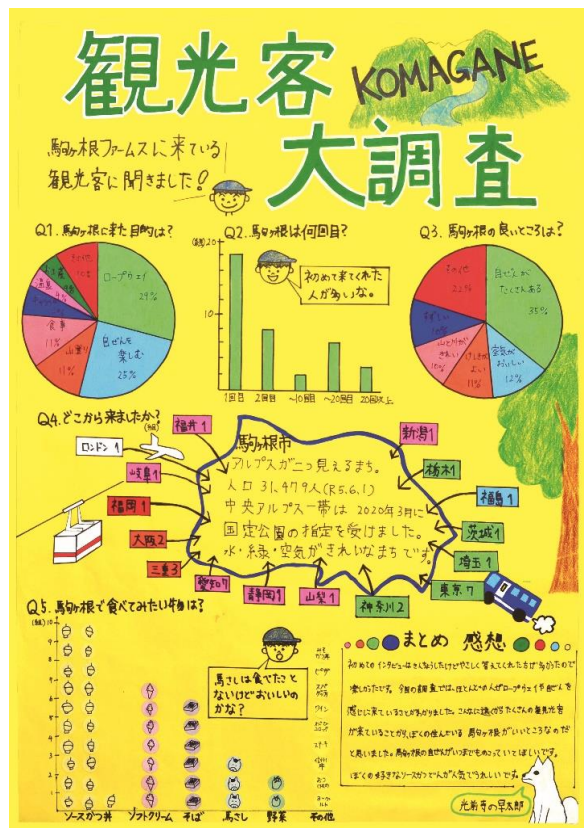 観光客
KOMAGANE
大調査
駒ヶ根ファームスに来ている
観光客に聞きました!
Q1.駒ヶ根に来た目的は?
ロープウェイ
29%
自ぜんを
楽しむ
25%
山登り
11%
食事
11%
温泉
Q2.駒ヶ根は何回目?
(組)
20
10
1回目
2回目
~10回目
~20回目
20回以上
初めて来てくれた
人が多いな。
Q3.駒ヶ根の良いところは?
自ぜんが
たくさんある
35%
空気が
おいしい
12%
けしきが
よい
11%
山と川が
きれい
10%
その他
22%
Q4.どこから来ましたか?
(組)
ロンドン1
福井1
岐阜1
福岡1
大阪2
三重3
愛知7
静岡1
山梨1
神奈川2
東京7
埼玉1
茨城1
福島1
栃木1
新潟1
駒ヶ根市
アルプスが二つ見えるまち。
人口 31,479人(R5.6.1)
中央アルプス一帯は 2020年3月に
国定公園の指定を受けました。
水・緑・空気がきれいなまちです。
Q5.駒ヶ根で食べてみたい物は?
(組)
10
9
8
7
6
5
4
3
2
1
ソースかつ丼
ソフトクリーム
そば
馬さし
野菜
その他
ピザ
ワイン
馬さしは食べたこと
ないけどおいしいの
かな?
まとめ 感想
初めてのインタビューはきんちょうしたけどやさしく答えてくれた方が多かったので
楽しかったです。今回の調査では、ほとんどの人がロープウェイや自ぜんを
感じに来ていることが分かりました。こんなに遠くからたくさんの観光客
が来ていることから、ぼくの住んでいる 駒ヶ根がいいところなのだ
と思いました。駒ヶ根の自ぜんがいつまでものこっていてほしいです。
ぼくの好きなソースかつどんが人気でうれしいです。
光前寺の早太郎